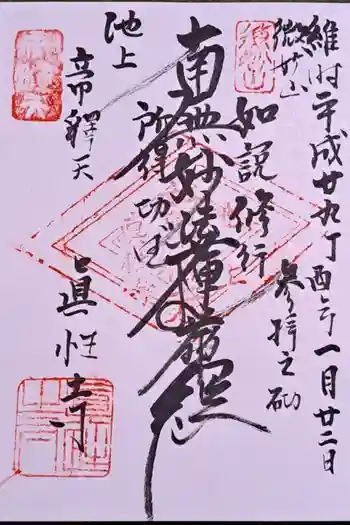 維時平成廿九丁酉年一月廿二日
微妙山
参拝之砌
如説修行
南無妙法蓮華経
所得功徳
池上
帝釋天
眞性寺